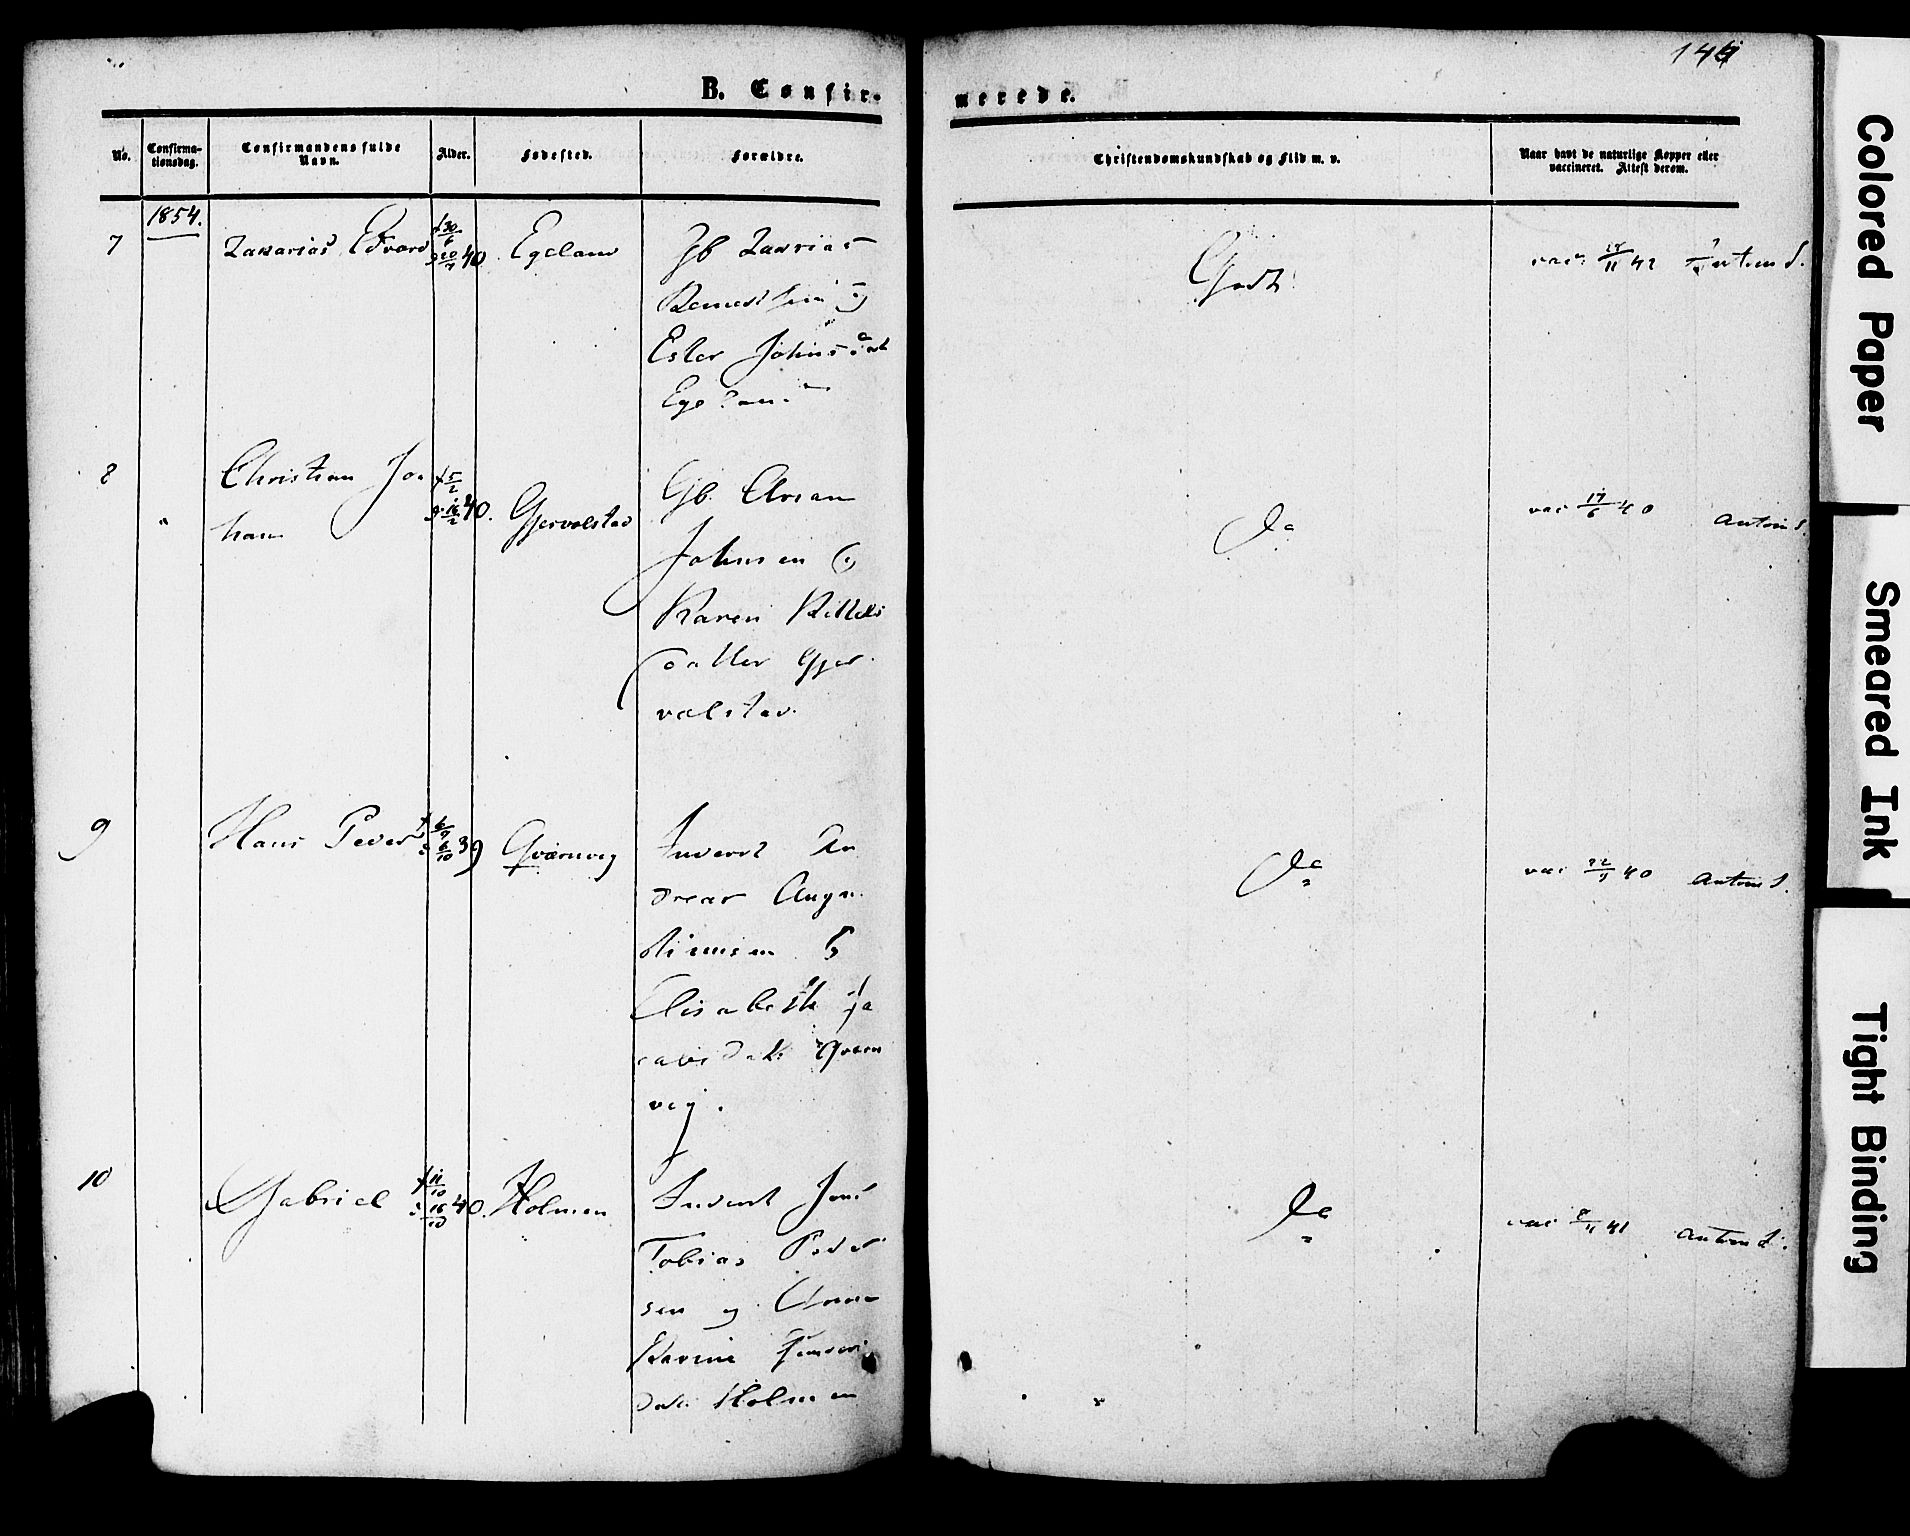 146
B. Confir-
merede.
No.
Confirma-
tionsdag.
Confirmandens fulde
Navn.
Alder.
Fødested.
Forældre.
Christendomskundskab og Flid m. v.
Naar havt de naturlige Kopper eller
vaccineret. Attest derom.
1854.
7 Zakarias Edvard f 30/6 d 20/7 40 Egeland Gb Zakrias
og
Ester Johnsdatt
Egeland
Godt
vac 42 Anton S.
8 Christian Jo f 5/2 d 16/2 40. Gjervolstad Gb.
han
Johnsen og
Karen Kittels
datter Gjer
volstad.
Do
vac 17/6 40 Anton S.
9 Hans Peder f 6/9 d 6/10 39 Qvernvig Inderst An
dreas Augu
stinusen og
Elisabeth Ja
cobsdatt Qvern
vig.
Do
vac 40 Anton S.
10 Gabriel f 11/10 d 18/10 40. Holmen Inderst Jens
Tobias Peder
sen og Anne
Karine
datt Holmen
Do
vac 41 Anton S.
Colored Paper
Smeared Ink
Tight Binding